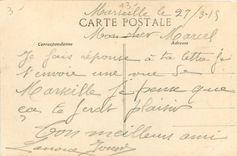 3
Marseille le 27/3-15
CARTE POSTALE
Mon cher Marcel
Correspondance
Adresse
Je fais réponse à ta lettre je
t'envoie une vue de
Marseille je pense que
ça te ferat plaisir
Ton meilleur ami